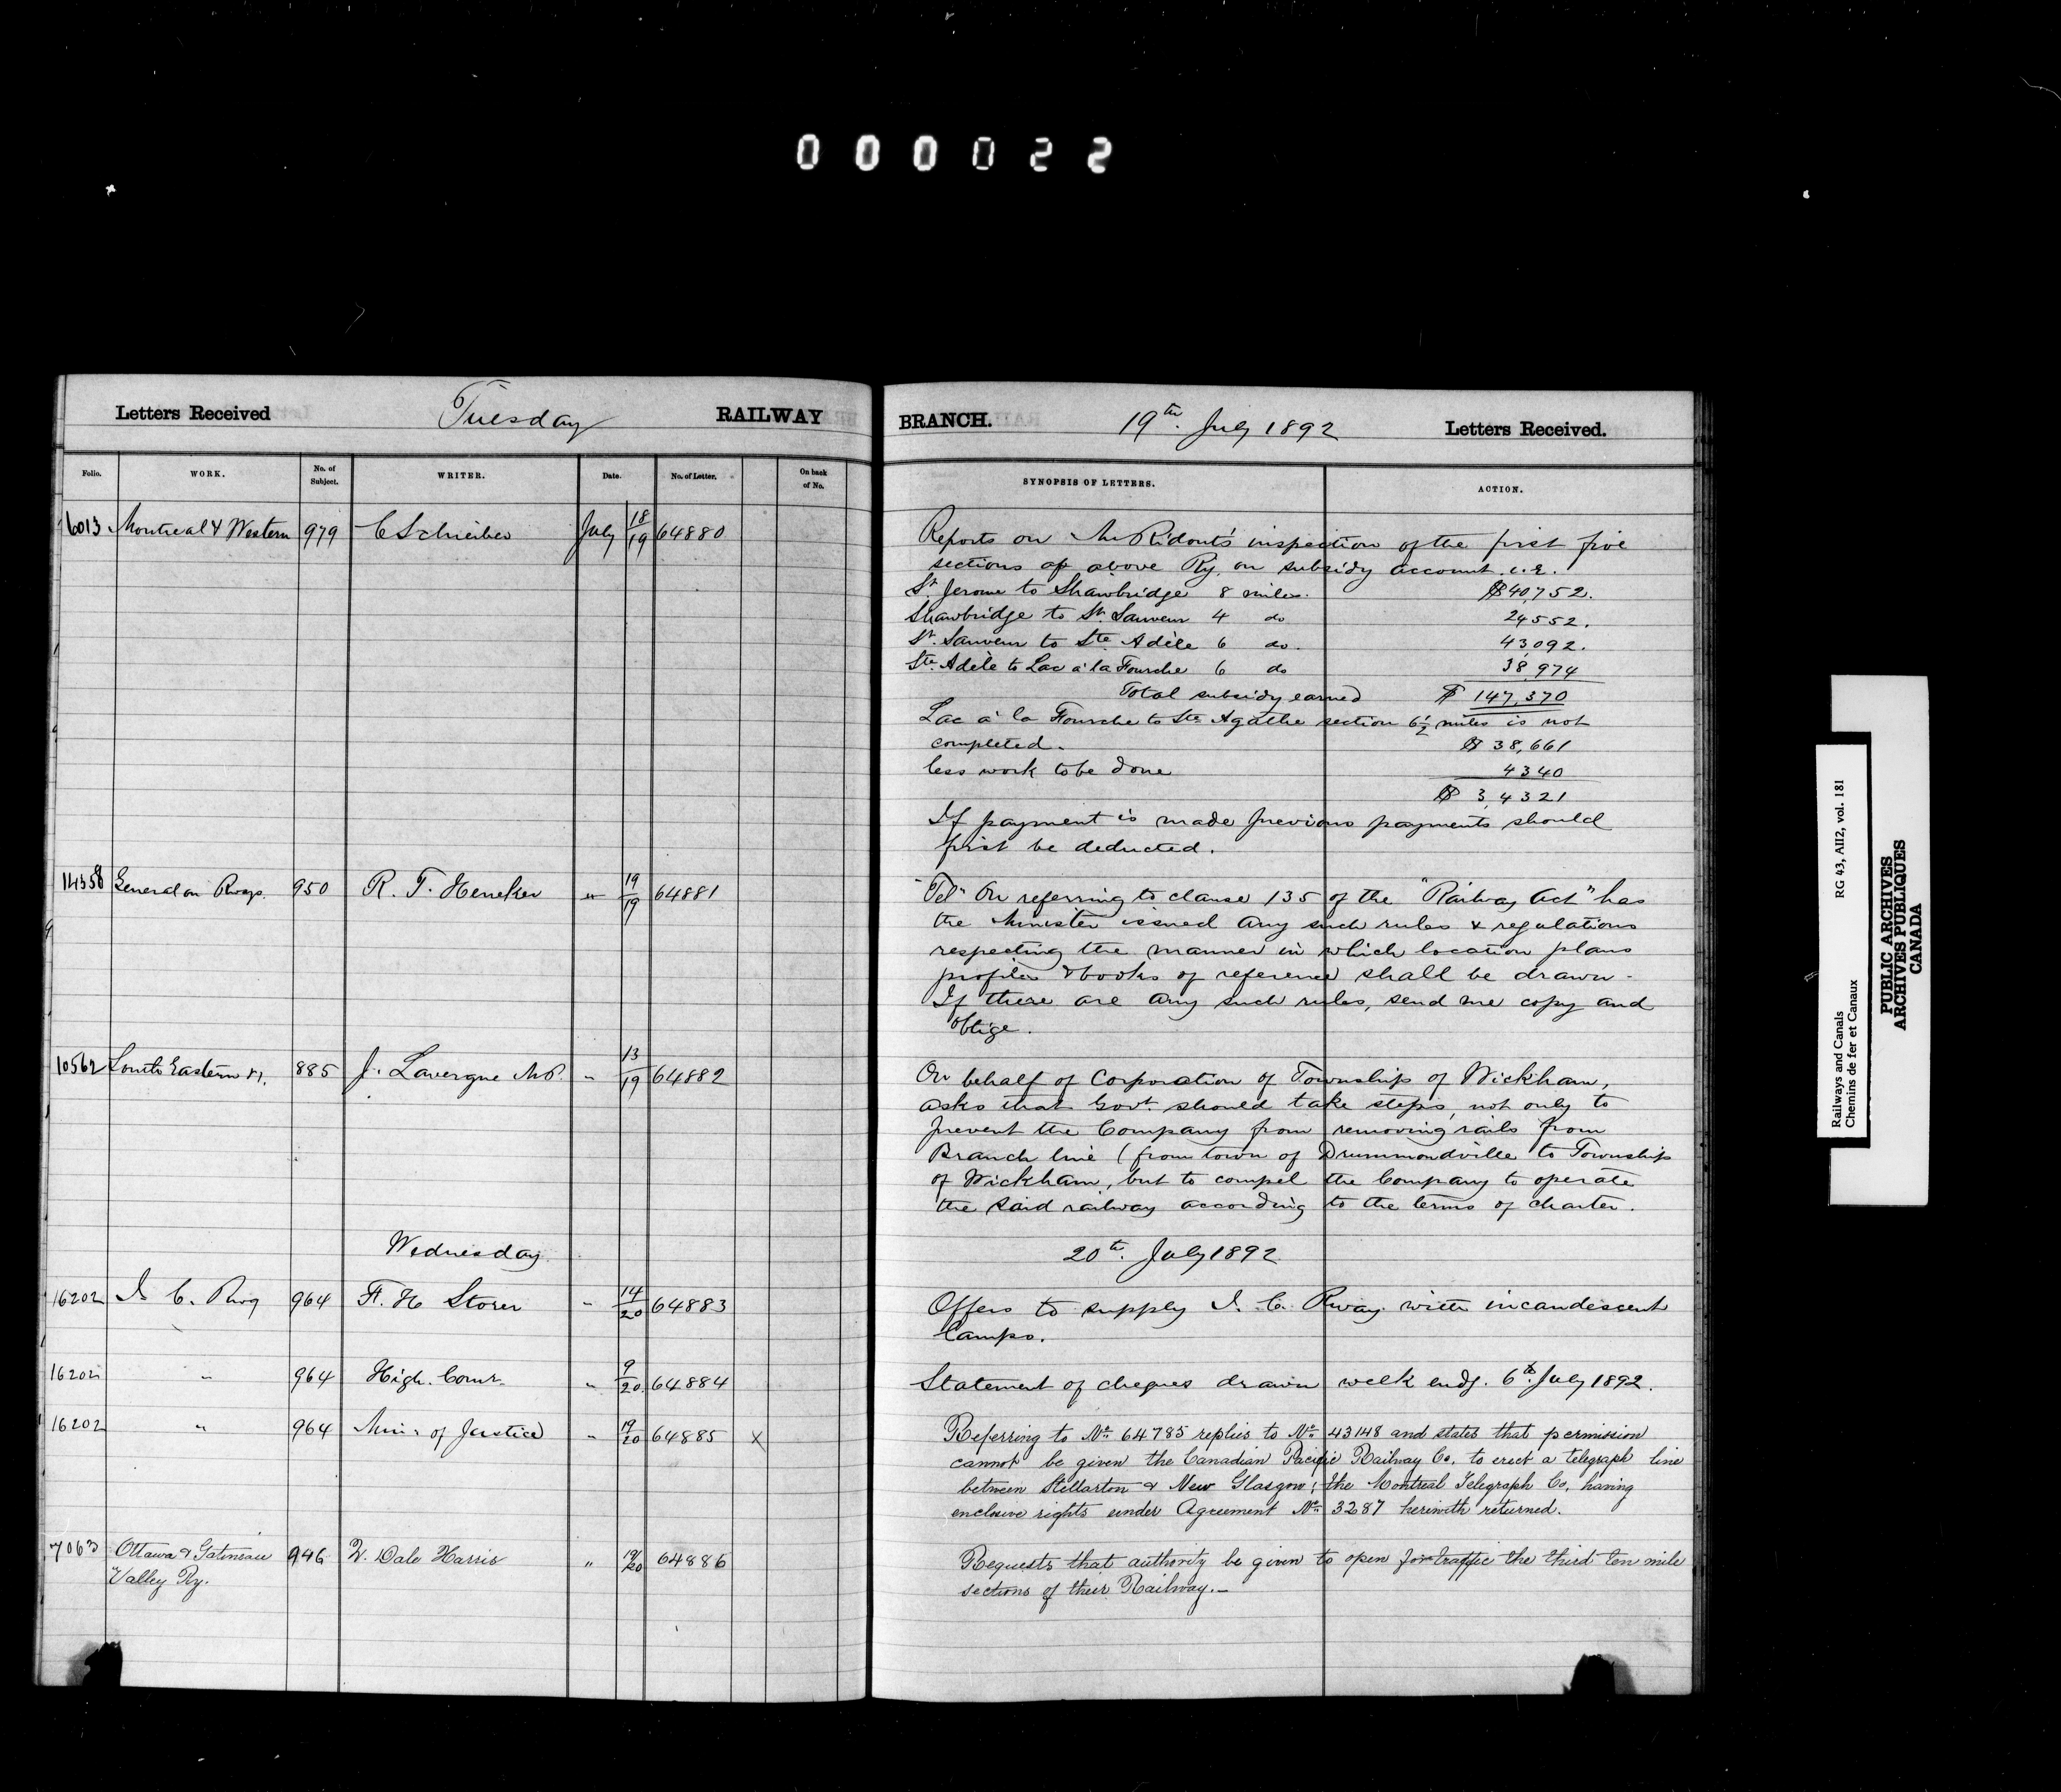 000022
Letters Received Tuesday RAILWAY
BRANCH. 19th. July 1892 Letters Received.
Folio. WORK. No. of Subject. WRITER. Date. No. of Letter. On back of No.
SYNOPSIS OF LETTERS. ACTION.
6013 Montreal & Western 979 C Schreiber July 18/19 64880
Reports on Mr Ridout's inspection of the first five
sections of above Ry. on subsidy account. i.e.
St. Jerome to Shawbridge 8 miles. $40,752.
Shawbridge to St. Sauveur 4 do 24552.
St. Sauveur to Ste. Adèle 6 do. 43,092.
Ste. Adèle to Lac à la Fourche 6 do 38,974
Total subsidy earned $ 147,370
Lac à la Fourche to Ste Agathe section 6½ miles is not
completed. $ 38,661
less work to be done 4340
$ 3,4321
If payment is made previous payments should
first be deducted.
14358 General on Rways. 950 R. T. Heneker " 19/19 64881
"Tel" On referring to clause 135 of the "Railway Act" has
the Minister issued any such rules & regulations
respecting the manner in which location plans
profiles & books of reference shall be drawn -
If there are any such rules, send me copy and
oblige.
10562 South Eastern Ry. 885 J. Lavergne M.P. " 13/19 64882
On behalf of Corporation of Township of Wickham,
asks that Govt. should take steps, not only to
prevent the Company from removing rails from
Branch line (from town of Drummondville to Township
of Wickham, but to compel the Company to operate
the said railway according to the terms of charter.
Wednesday 20th. July 1892
16202 I. C. Rwy 964 F. H Storer " 14/20 64883
Offers to supply I. C. Rway. with incandescent
lamps.
16202 " 964 High. Comr. " 9/20 64884
Statement of cheques drawn week endg. 6th. July 1892.
16202 " 964 Minr. of Justice " 19/20 64885 X
Referring to No. 64785 replies to No. 43148 and states that permission
cannot be given the Canadian Pacific Railway Co. to erect a telegraph line
between Stellarton & New Glasgow; the Montreal Telegraph Co. having
exclusive rights under Agreement No. 3287 herewith returned.
7063 Ottawa & Gatineau 946 W. Dale Harris " 19/20 64886
Valley Ry.
Requests that authority be given to open for traffic the third ten mile
sections of their Railway.-
Railways and Canals RG 43, AII2, vol. 181
Chemins de fer et Canaux
PUBLIC ARCHIVES
ARCHIVES PUBLIQUES
CANADA